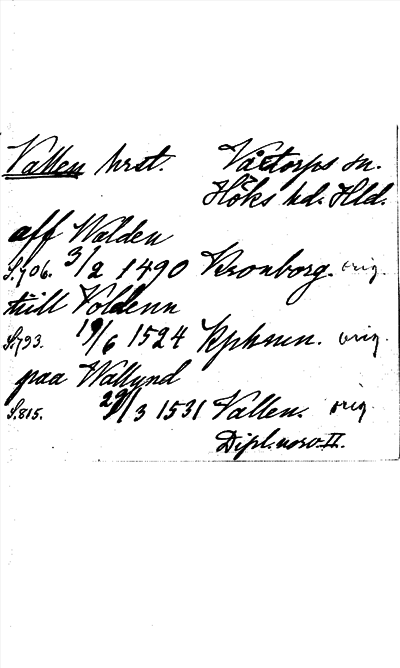 Vallen hrst. Våxtorps sn.
Höks hd. Hld.
aff Walden
S.706. 3/2 1490 Kronborg. orig.
till Voldenn
S.793. 19/6 1524 Kphmn. orig.
paa Wallund
S.815. 29/3 1531 Vallen. orig.
Dipl. norv. II.